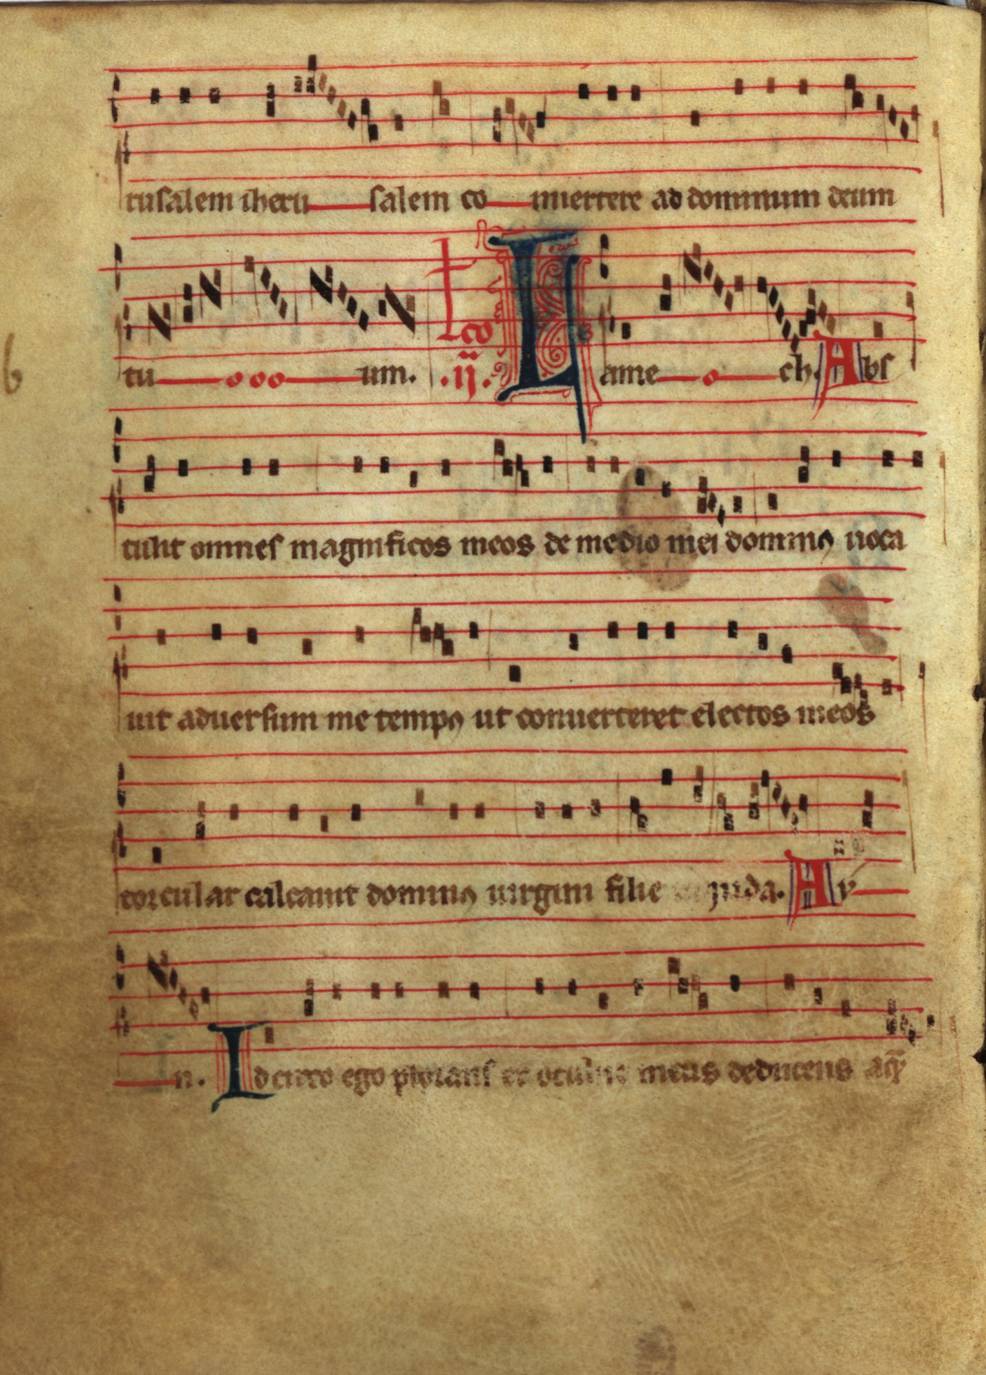 rusalem iheru salem co nuertere ad dominum deum
tu ooo um. Lco .ij. Lame o ch. Abs
tulit omnes magnificos meos de medio mei dominꝰ uoca
uit aduersum me tempꝰ ut conuerteret electos meos
torcular calcauit dominꝰ uirgini filie iuda. Ay
n. Idcirco ego plorans et oculus meus deducens aq̄
b